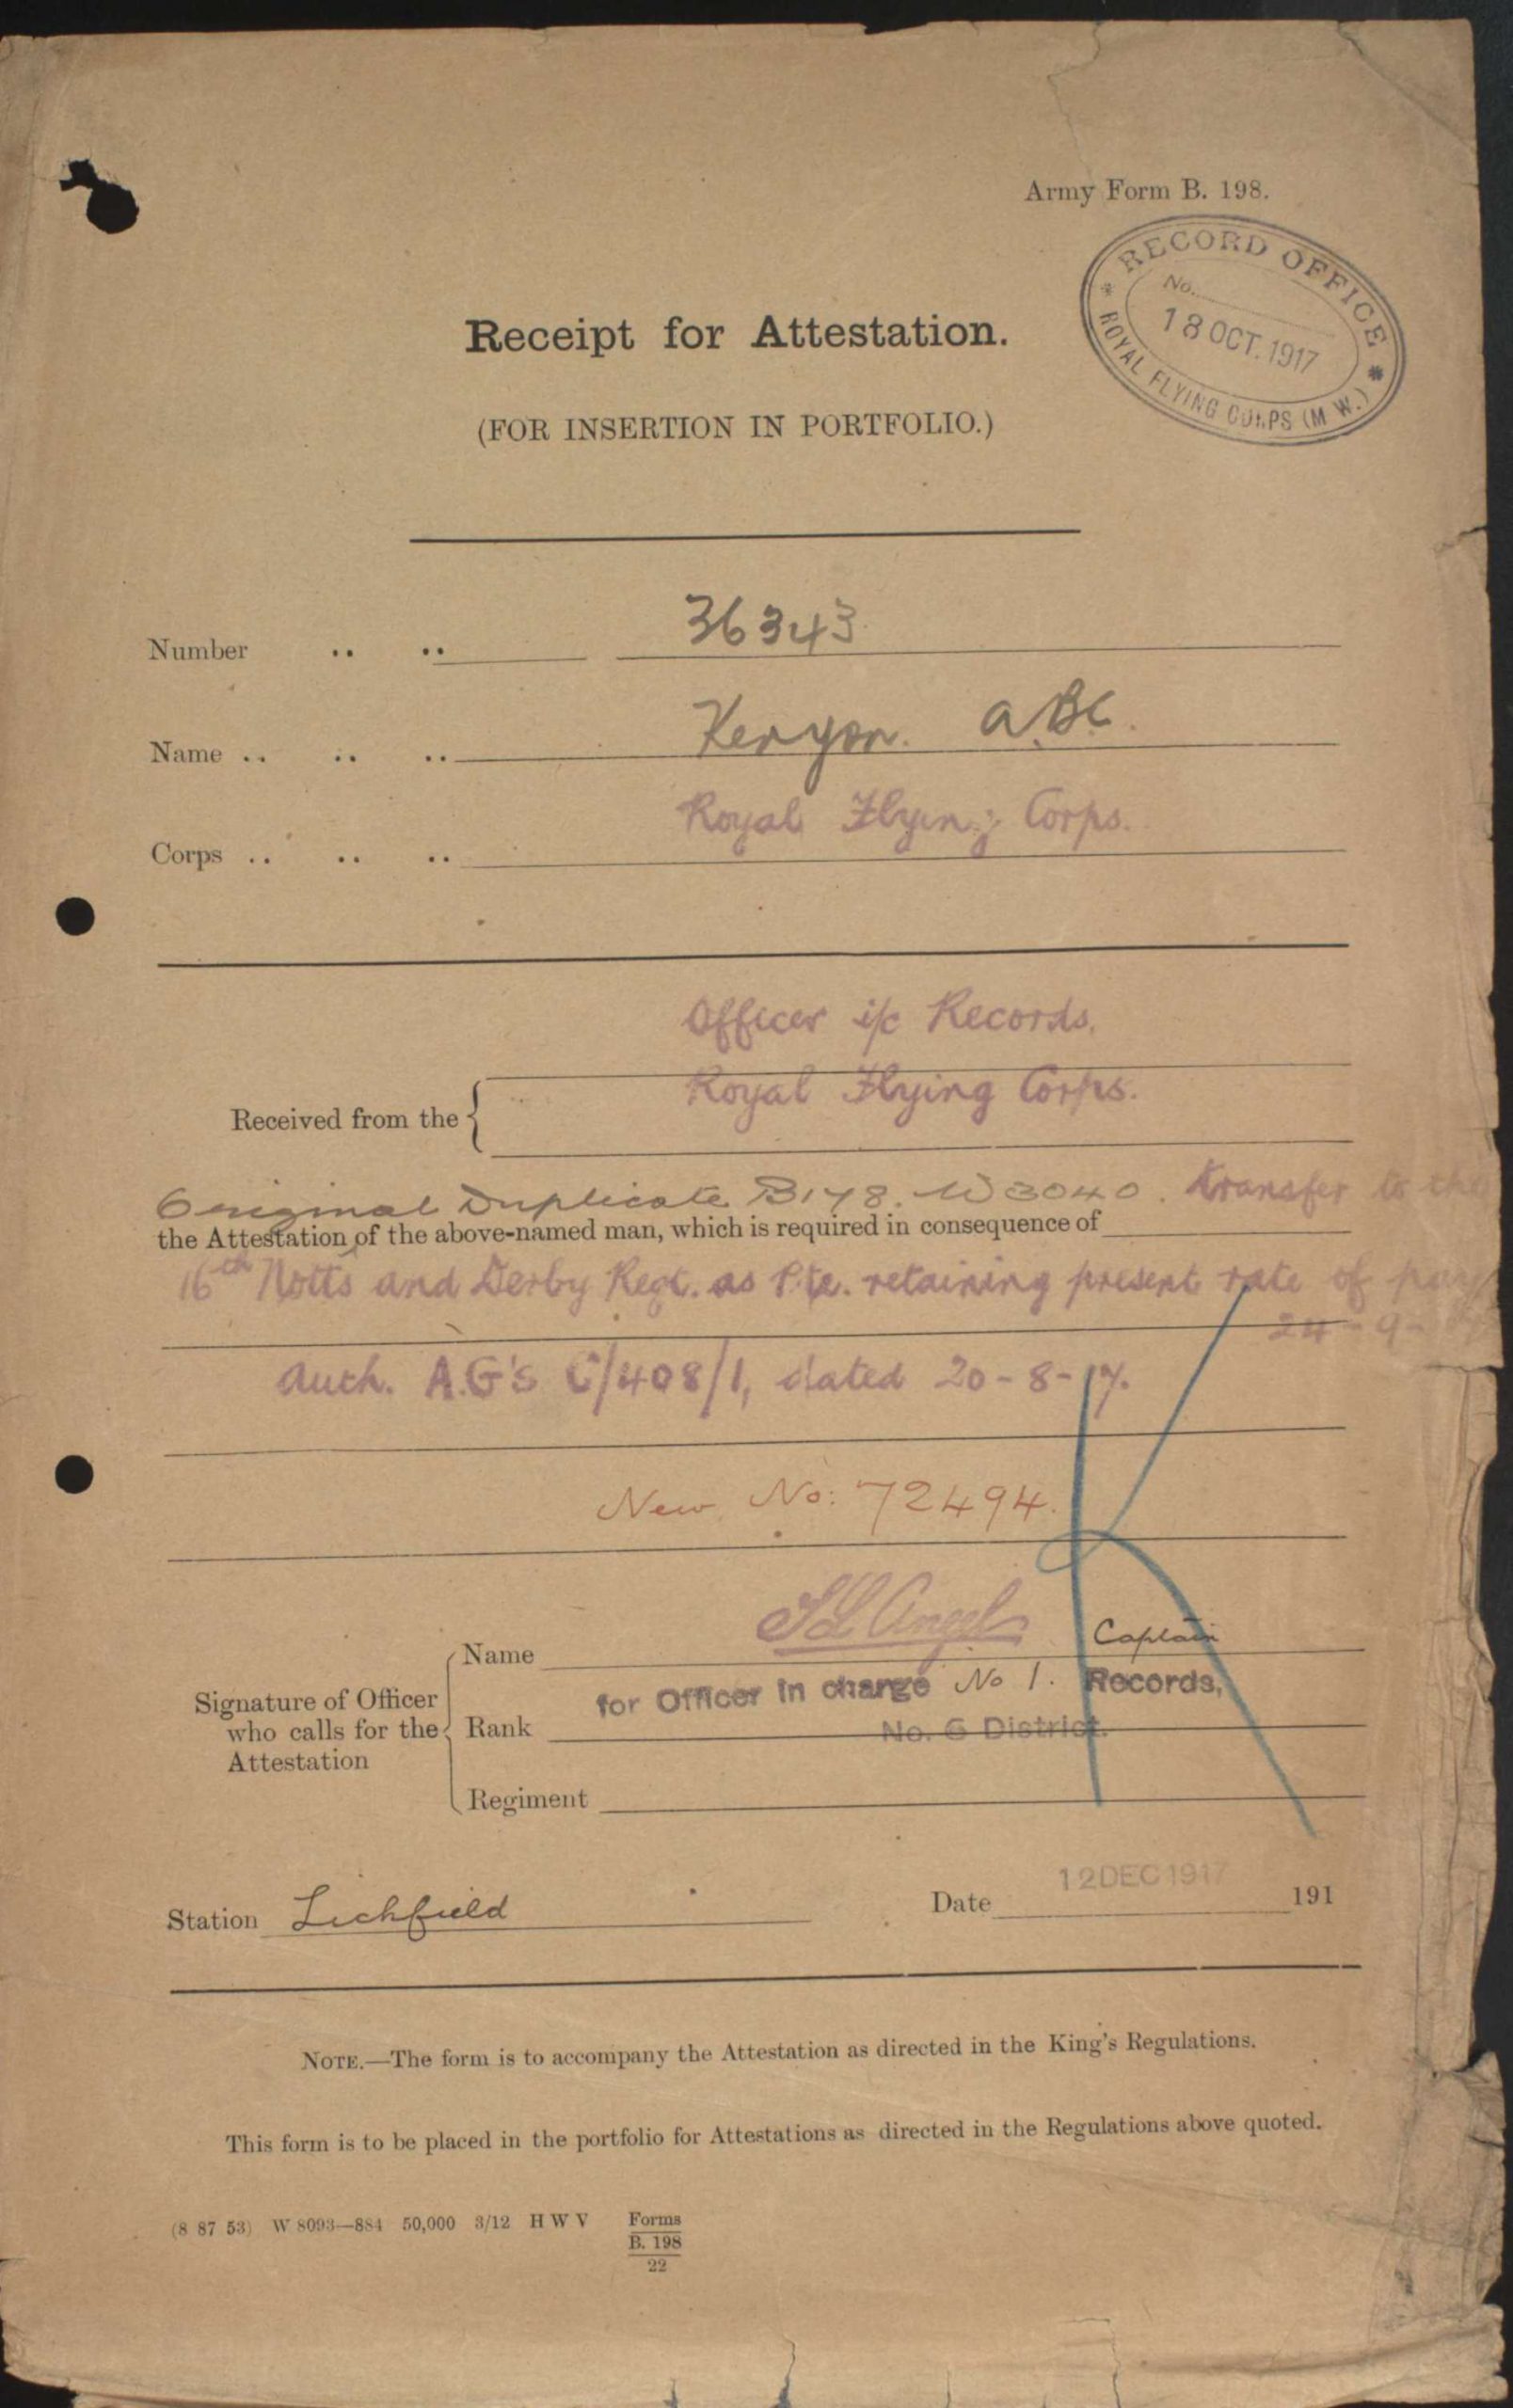 Army Form B. 198.
* RECORD OFFICE *
No.
18 OCT. 1917
ROYAL FLYING CORPS (M.W.)
Receipt for Attestation.
(FOR INSERTION IN PORTFOLIO.)
Number .. .. 36343
Name .. .. .. Kenyon. A.B.C.
Corps .. .. .. Royal Flying Corps.
Officer i/c Records.
Received from the Royal Flying Corps.
Original Duplicate B178. W3040. transfer to the
the Attestation of the above-named man, which is required in consequence of
16th Notts and Derby Regt. as Pte. retaining present rate of pay
24-9-
Auth. A.G's C/408/1, dated 20-8-17.
New No: 72494.
K
Signature of Officer who calls for the Attestation
Name Captain
for Officer in charge No 1. Records,
Rank No. 6 District.
Regiment
Station Lichfield Date 12 DEC 1917 191
NOTE.—The form is to accompany the Attestation as directed in the King's Regulations.
This form is to be placed in the portfolio for Attestations as directed in the Regulations above quoted.
(8 87 53) W 8093—884 50,000 3/12 H W V Forms
B. 198
22